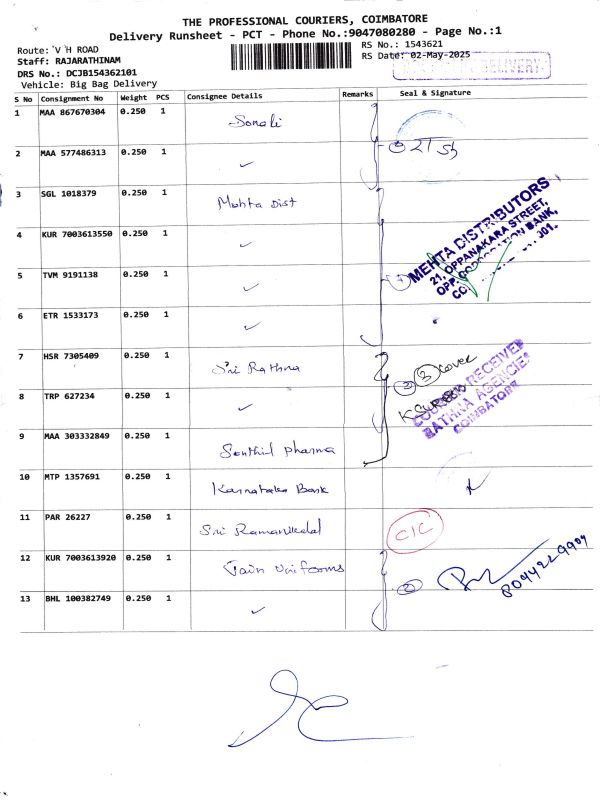 THE PROFESSIONAL COURIERS, COIMBATORE
Delivery Runsheet - PCT - Phone No.:9047080280 - Page No.:1
Route: V H ROAD
RS No.: 1543621
Staff: RAJARATHINAM
RS Date: 02-May-2025
DELIVERY
DRS No.: DCJB154362101
Vehicle: Big Bag Delivery
S No Consignment No Weight PCS Consignee Details Remarks Seal & Signature
1 MAA 867670304 0.250 1 Sonali
2 MAA 577486313 0.250 1 ✓
3 SGL 1018379 0.250 1 Mehta Dist
4 KUR 7003613550 0.250 1 ✓
MEHTA DISTRIBUTORS
21, OPPANAKARA STREET,
OPP. CORPORATION BANK,
5 TVM 9191138 0.250 1 ✓
6 ETR 1533173 0.250 1 ✓
7 HSR 7305409 0.250 1 Sri Rathna
2 3 cover
RECEIVED
RATHNA AGENCIES
COIMBATORE
8 TRP 627234 0.250 1 ✓
9 MAA 303332849 0.250 1 Senthil pharma
10 MTP 1357691 0.250 1 Karnataka Bank
11 PAR 26227 0.250 1 Sri Ramanikdal CIC
12 KUR 7003613920 0.250 1 Jain Uniforms
2
13 BHL 100382749 0.250 1 ✓